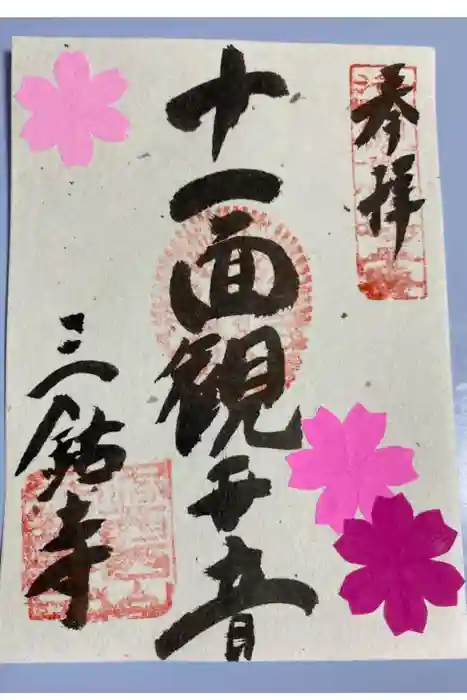 参拝
十一面観世音
三鈷寺